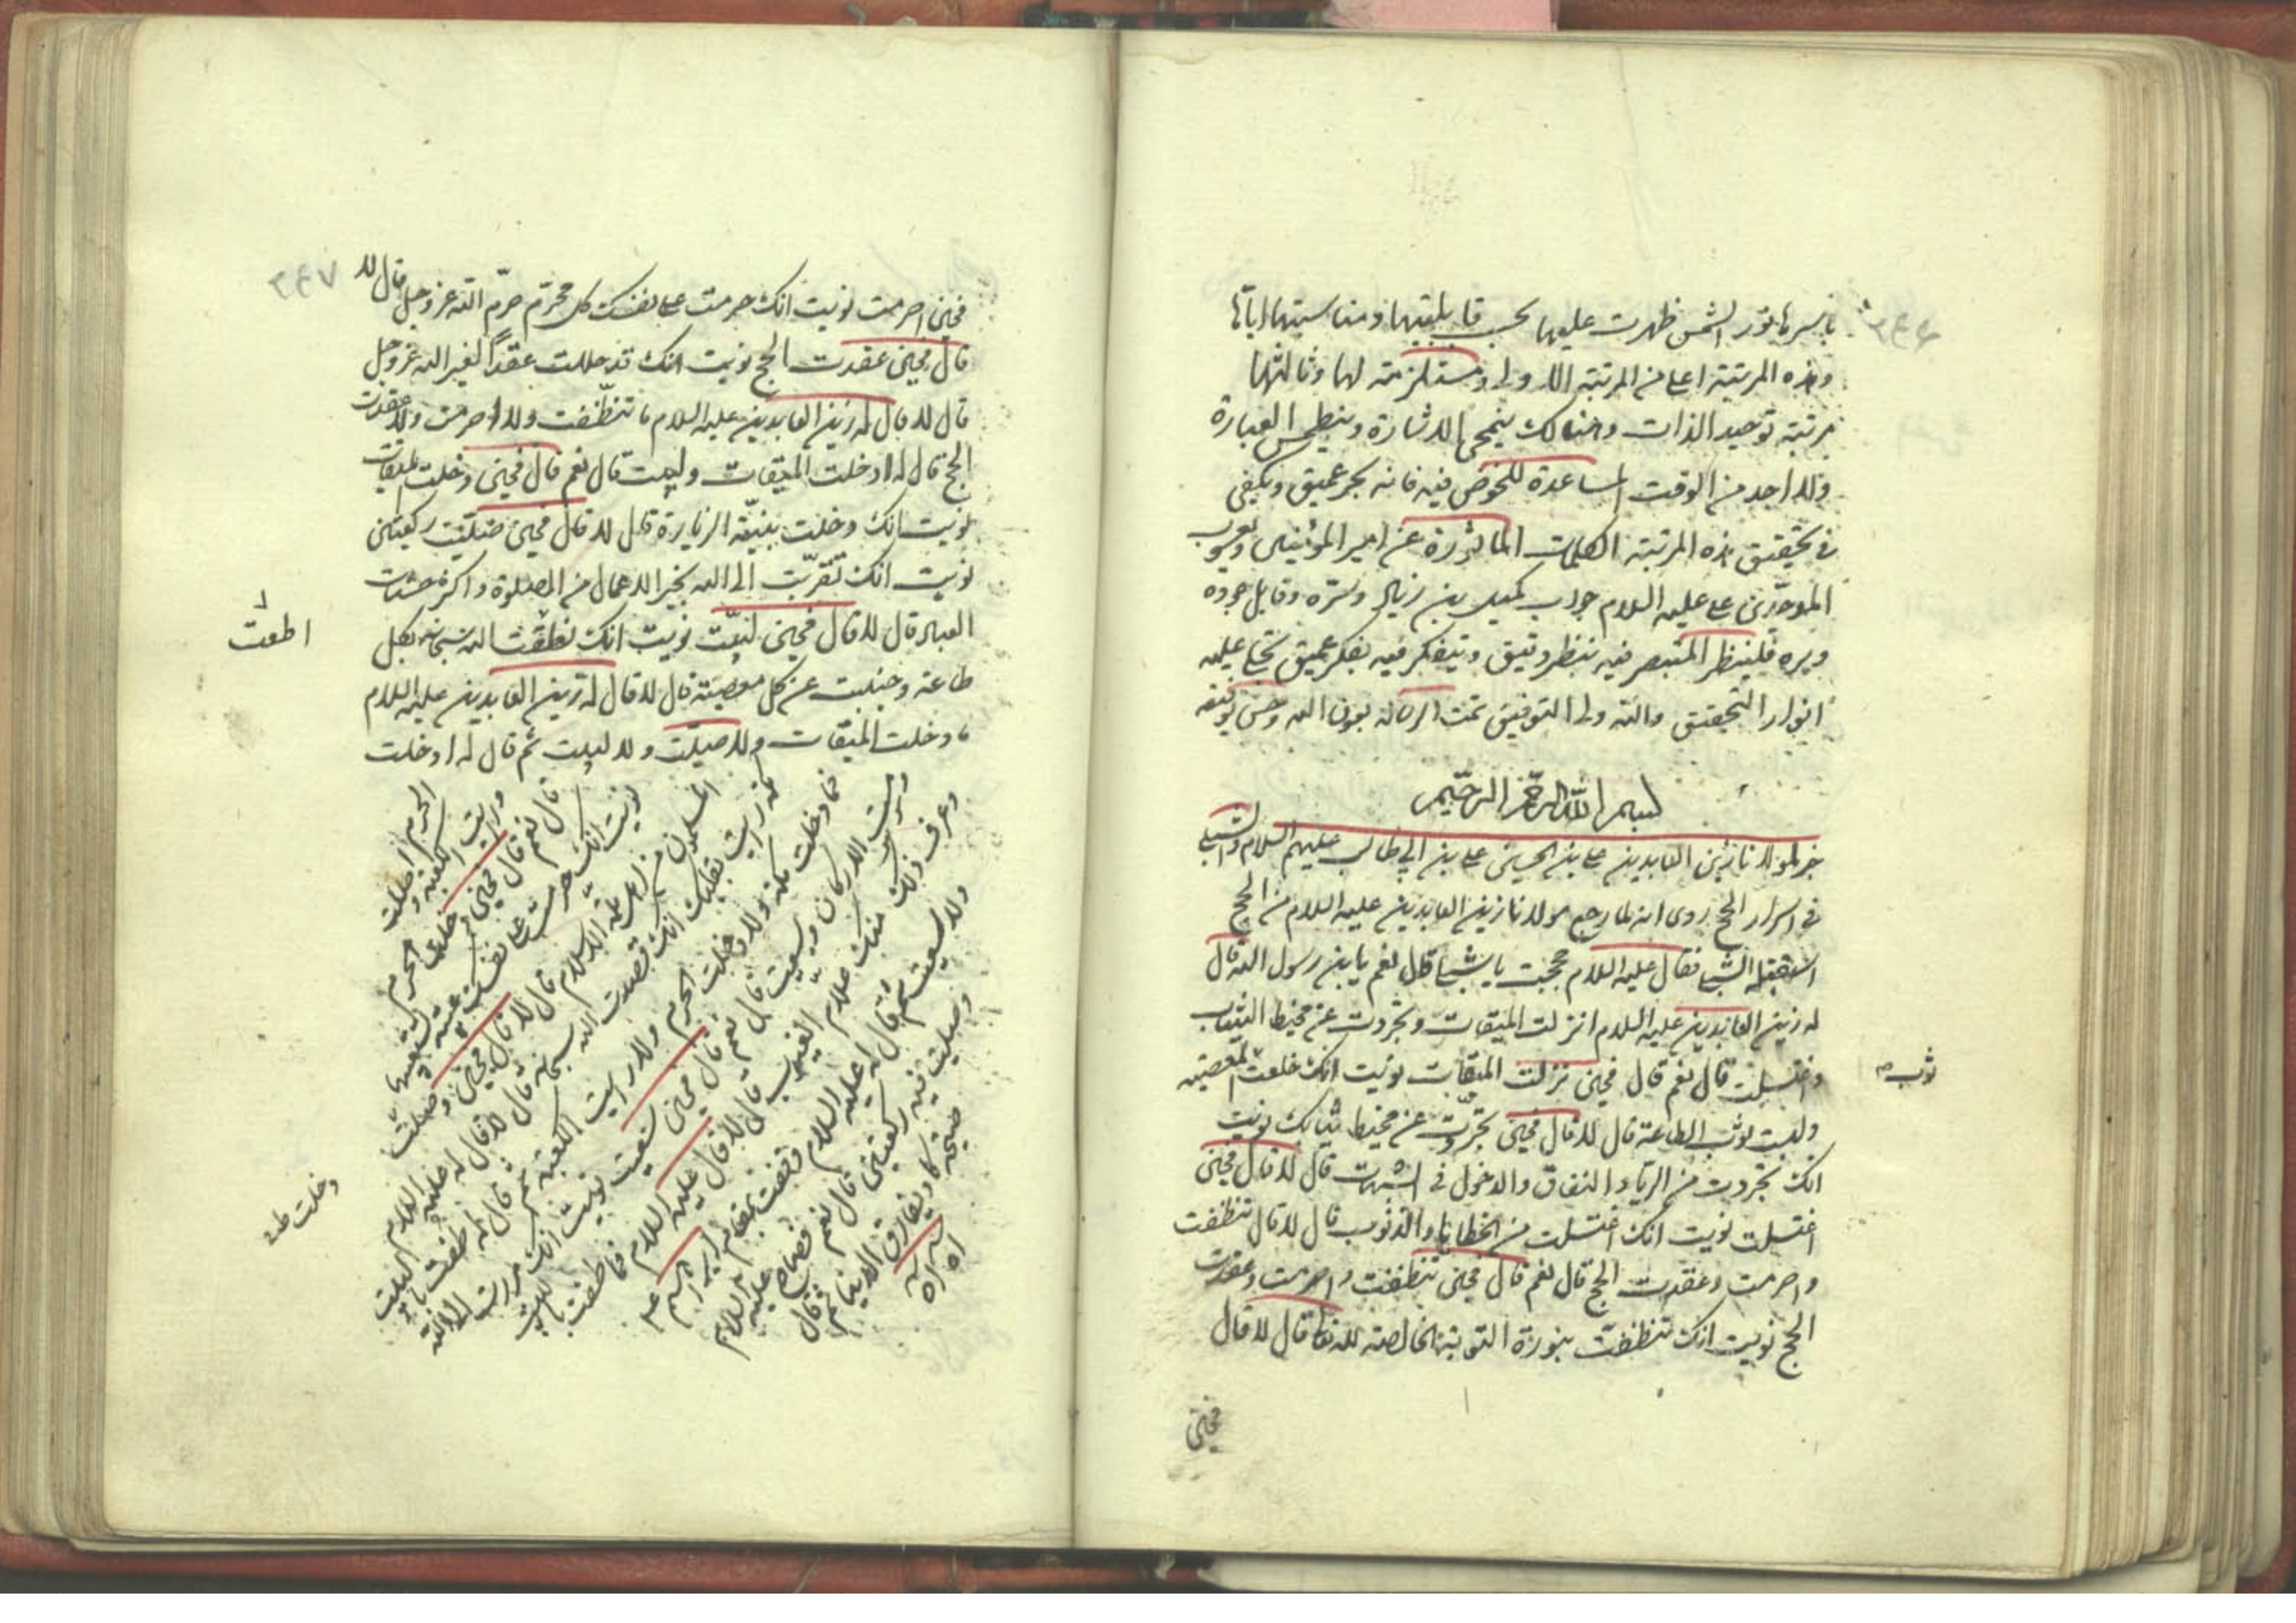 ٢٤٦
باسرها نور الشمس ظهرت عليها بحسب قابليتها ومناسبتها اياها
وهذه المرتبة اعلى من المرتبة الاولى ومستلزمة لها وثالثها
مرتبة توحيد الذات وهنالك ينمحى الاشارة وينطمس العبارة
ولا اجد من الوقت المساعدة للخوض فيه فانه بحر عميق ويكفى
فى تحقيق هذه المرتبة الكلمات الماثورة عن امير المؤمنين ويعسوب
الموحدين على عليه السلام جواب كميل بن زياد
فلينظر المتبصر فيه بنظر دقيق ويتفكر فيه بفكر عميق تجلى عليه
انوار التحقيق والله ولى التوفيق تمت الرسالة بعون الله وحسن توفيقه
بسم الله الرحمن الرحيم
خبر مولانا زين العابدين على بن الحسين على بن ابى طالب عليهم السلام والشبلى
فى اسرار الحج روى انه لما رجع مولانا زين العابدين عليه السلام من الحج
استقبله الشبلى فقال عليه السلام حججت يا شبلى قال نعم يا بن رسول الله قال
له زين العابدين عليه السلام انزلت الميقات وتجردت عن مخيط الثياب
واغتسلت قال نعم قال فحين نزلت الميقات نويت انك خلعت المعصية
ثوب
ولبست ثوب الطاعة قال لا قال فحين تجردت عن مخيط ثيابك نويت
انك تجردت من الرياء والنفاق والدخول فى الشبهات قال لا قال فحين
اغتسلت نويت انك اغتسلت من الخطايا والذنوب قال لا قال تنظفت
واحرمت وعقدت الحج قال نعم قال فحين تنظفت واحرمت وعقدت
الحج نويت انك تنظفت بنورة التوبة الخالصة لله تعالى قال لا قال
فحين
٢٤٧
فحين احرمت نويت انك حرمت على نفسك كل محرم حرم الله عز وجل قال لا
قال فحين عقدت الحج نويت انك قد حللت عقدا لغير الله عز وجل
قال لا قال له زين العابدين عليه السلام ما تنظفت ولا احرمت ولا عقدت
الحج قال له ادخلت الميقات ولبيت قال نعم قال فحين دخلت الميقات
نويت انك دخلت بنية الزيارة قال لا قال فحين صليت ركعتين
نويت انك تقربت الى الله بخير الاعمال من الصلوة واكبر حسنات
العباد قال لا قال فحين لبيت نويت انك نطقت الله سبحانه بكل
اطعت
طاعة وجنبت عن كل معصية قال لا قال له زين العابدين عليه السلام
ما دخلت الميقات ولا صليت ولا لبيت ثم قال له ادخلت
الحرم
ورايت الكعبة وصليت
قال نعم قال فحين دخلت الحرم
نويت انك حرمت على نفسك كل غيبة
المسلمون من اهل ملة الاسلام قال لا قال فحين وصلت
مكة نويت بقلبك انك قصدت الله سبحانه قال لا قال له عليه السلام
فما دخلت مكة ولا دخلت الحرم ولا رايت الكعبة ثم قال له طفت بالبيت
ومسست الاركان وسعيت قال نعم قال فحين سعيت نويت انك هربت الى الله
وعرف ذلك منك علام الغيوب قال لا قال عليه السلام فما طفت بالبيت
ولا سعيت ثم قال له عليه السلام وقفت بمقام ابراهيم
وصليت فيه ركعتين قال نعم فصاح عليه السلام
صيحة كاد يفارق الدنيا ثم قال
اه اه
دخلت